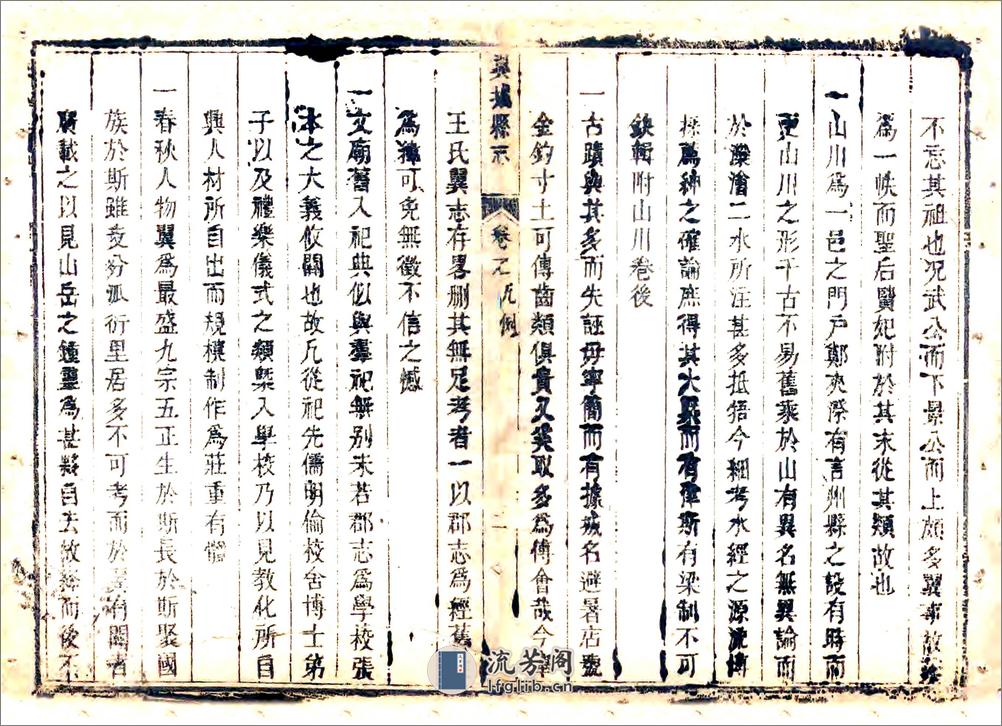 不忘其祖也况武公而下景公而上頗多翼事故
為一帙而聖后賢妃附於其末從其類故也
一山川為一邑之門戶鄭夾漈有言州縣之設有時而
更山川之形千古不易舊乘於山有異名無異論而
於澮二水所注甚多抵牾今細考水經之源流博
採薦紳之確論庶得其大槩而有俾斯有梁制不可
缺輯附山川卷後
一古蹟與其多而失誣毋寧簡而有據戒名避暑店號
金釣寸土可傳齒類俱貴又奚取多為傅會哉今
王氏翼志存畧刪其無足考者一以郡志為經舊
為緯可免無徵不信之憾
翼城縣志
卷之凡例
二
一文廟舊入祀典似與羣祀無别未若郡志為學校張
本之大義攸關也故凡從祀先儒明倫校舍博士弟
子以及禮樂儀式之類槩入學校乃以見教化所自
興人材所自出而規模制作為莊重有體
一春秋人物翼為最盛九宗五正生於斯長於斯聚國
族於斯雖支分派衍里居多不可考而於翼有關者
載之以見山岳之鍾靈為甚夥自去故絳而後不
流芳阁
lfglib.cn